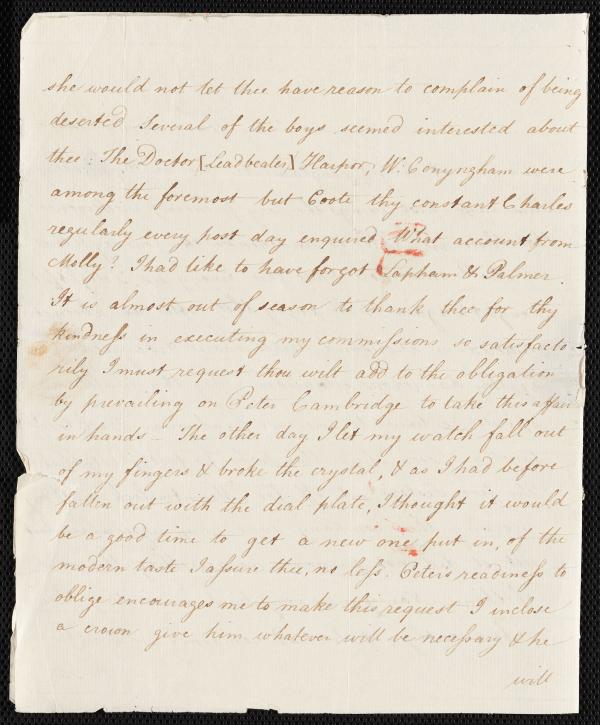 she would not let thee have reason to complain of being
deserted Several of the boys seemed interested about
thee: The Doctor [Leadbeater] Harpor, W. Conyngham were
among the foremost but Coote thy constant Charles
regularly every post day enquired What account from
Molly? I had like to have forgot Lapham & Palmer.
It is almost out of season to thank thee for thy
kindness in executing my commissions so satisfacto
rily I must request thou wilt add to the obligation
by prevailing on Peter Cambridge to take this affair
in hands – The other day I let my watch fall out
of my fingers & broke the crystal, & as I had before
fallen out with the dial plate, I thought it would
be a good time to get a new one put in, of the
modern taste I assure thee, no less. Peter's readiness to
oblige encourages me to make this request I inclose
a crown give him whatever will be necessary & he
will